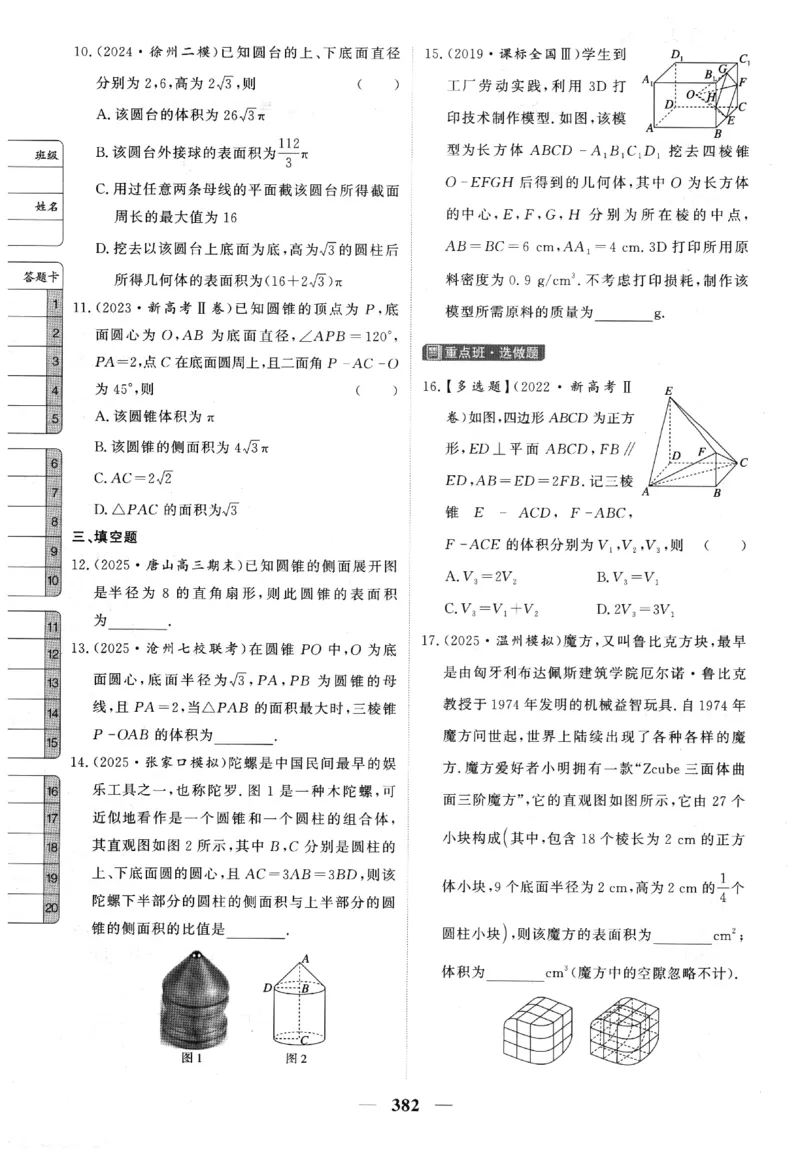 班级
姓名
答题卡
1
2
3
4
5
6
7
8
9
10
11
12
13
14
15
16
17
18
19
20
10.(2024·徐州二模)已知圆台的上、下底面直径
分别为2,6,高为2√3,则 ( )
A.该圆台的体积为26√3π
B.该圆台外接球的表面积为112/3π
C.用过任意两条母线的平面截该圆台所得截面
周长的最大值为16
D.挖去以该圆台上底面为底,高为√3的圆柱后
所得几何体的表面积为(16+2√3)π
11.(2023·新高考Ⅱ卷)已知圆锥的顶点为P,底
面圆心为O,AB为底面直径,∠APB=120°,
PA=2,点C在底面圆周上,且二面角P-AC-O
为45°,则 ( )
A.该圆锥体积为π
B.该圆锥的侧面积为4√3π
C.AC=2√2
D.△PAC的面积为√3
三、填空题
12.(2025·唐山高三期末)已知圆锥的侧面展开图
是半径为8的直角扇形,则此圆锥的表面积
为________.
13.(2025·沧州七校联考)在圆锥PO中,O为底
面圆心,底面半径为√3,PA,PB为圆锥的母
线,且PA=2,当△PAB的面积最大时,三棱锥
P-OAB的体积为________.
14.(2025·张家口模拟)陀螺是中国民间最早的娱
乐工具之一,也称陀罗.图1是一种木陀螺,可
近似地看作是一个圆锥和一个圆柱的组合体,
其直观图如图2所示,其中B,C分别是圆柱的
上、下底面圆的圆心,且AC=3AB=3BD,则该
陀螺下半部分的圆柱的侧面积与上半部分的圆
锥的侧面积的比值是________.
A
D
B
C
图1
图2
15.(2019·课标全国Ⅲ)学生到
工厂劳动实践,利用3D打
印技术制作模型.如图,该模
型为长方体ABCD-A₁B₁C₁D₁挖去四棱锥
O-EFGH后得到的几何体,其中O为长方体
的中心,E,F,G,H分别为所在棱的中点,
AB=BC=6 cm,AA₁=4 cm.3D打印所用原
料密度为0.9 g/cm³.不考虑打印损耗,制作该
模型所需原料的质量为________g.
D₁
C₁
G
A₁
B₁
F
O
H
D
C
E
A
B
重点班·选做题
16.【多选题】(2022·新高考Ⅱ
卷)如图,四边形ABCD为正方
形,ED⊥平面ABCD,FB∥
ED,AB=ED=2FB.记三棱
锥E-ACD,F-ABC,
F-ACE的体积分别为V₁,V₂,V₃,则 ( )
A.V₃=2V₂ B.V₃=V₁
C.V₃=V₁+V₂ D.2V₃=3V₁
E
D
F
C
A
B
17.(2025·温州模拟)魔方,又叫鲁比克方块,最早
是由匈牙利布达佩斯建筑学院厄尔诺·鲁比克
教授于1974年发明的机械益智玩具.自1974年
魔方问世起,世界上陆续出现了各种各样的魔
方.魔方爱好者小明拥有一款“Zcube三面体曲
面三阶魔方”,它的直观图如图所示,它由27个
小块构成(其中,包含18个棱长为2 cm的正方
体小块,9个底面半径为2 cm,高为2 cm的1/4个
圆柱小块),则该魔方的表面积为________cm²;
体积为________cm³(魔方中的空隙忽略不计).
— 382 —